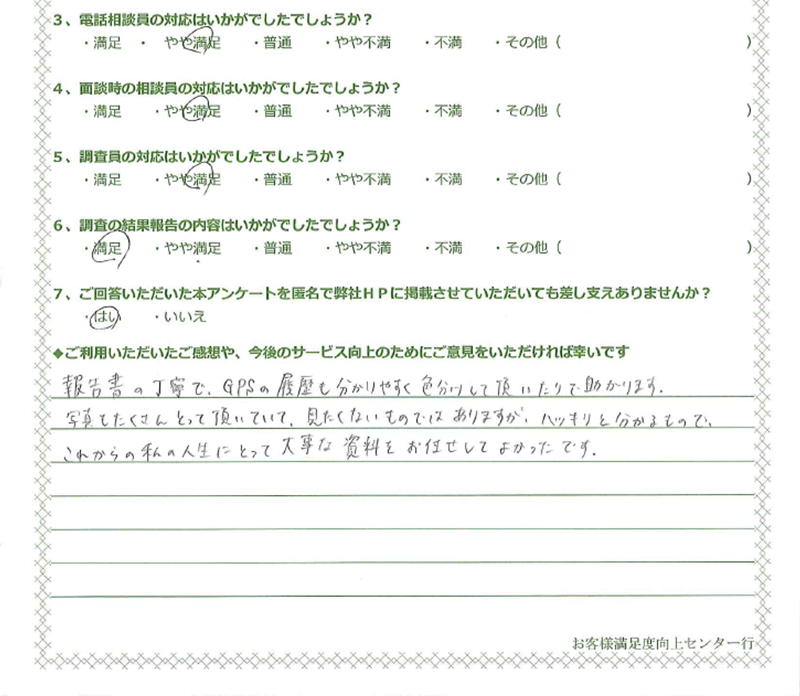 3、電話相談員の対応はいかがでしたでしょうか？
・満足 ・ やや満足 ・普通 ・やや不満 ・不満 ・その他（ ）
4、面談時の相談員の対応はいかがでしたでしょうか？
・満足 ・やや満足 ・普通 ・やや不満 ・不満 ・その他（ ）
5、調査員の対応はいかがでしたでしょうか？
・満足 ・やや満足 ・普通 ・やや不満 ・不満 ・その他（ ）
6、調査の結果報告の内容はいかがでしたでしょうか？
・満足 ・やや満足 ・普通 ・やや不満 ・不満 ・その他（ ）
7、ご回答いただいた本アンケートを匿名で弊社ＨＰに掲載させていただいても差し支えありませんか？
・はい ・いいえ
◆ご利用いただいたご感想や、今後のサービス向上のためにご意見をいただければ幸いです
報告書の丁寧で、GPSの履歴も分かりやすく色分けして頂いたりで助かります。
写真もたくさんとって頂いていて、見たくないものではありますが、ハッキリと分かるもので、
これからの私の人生にとって大事な資料をお任せしてよかったです。
お客様満足度向上センター行